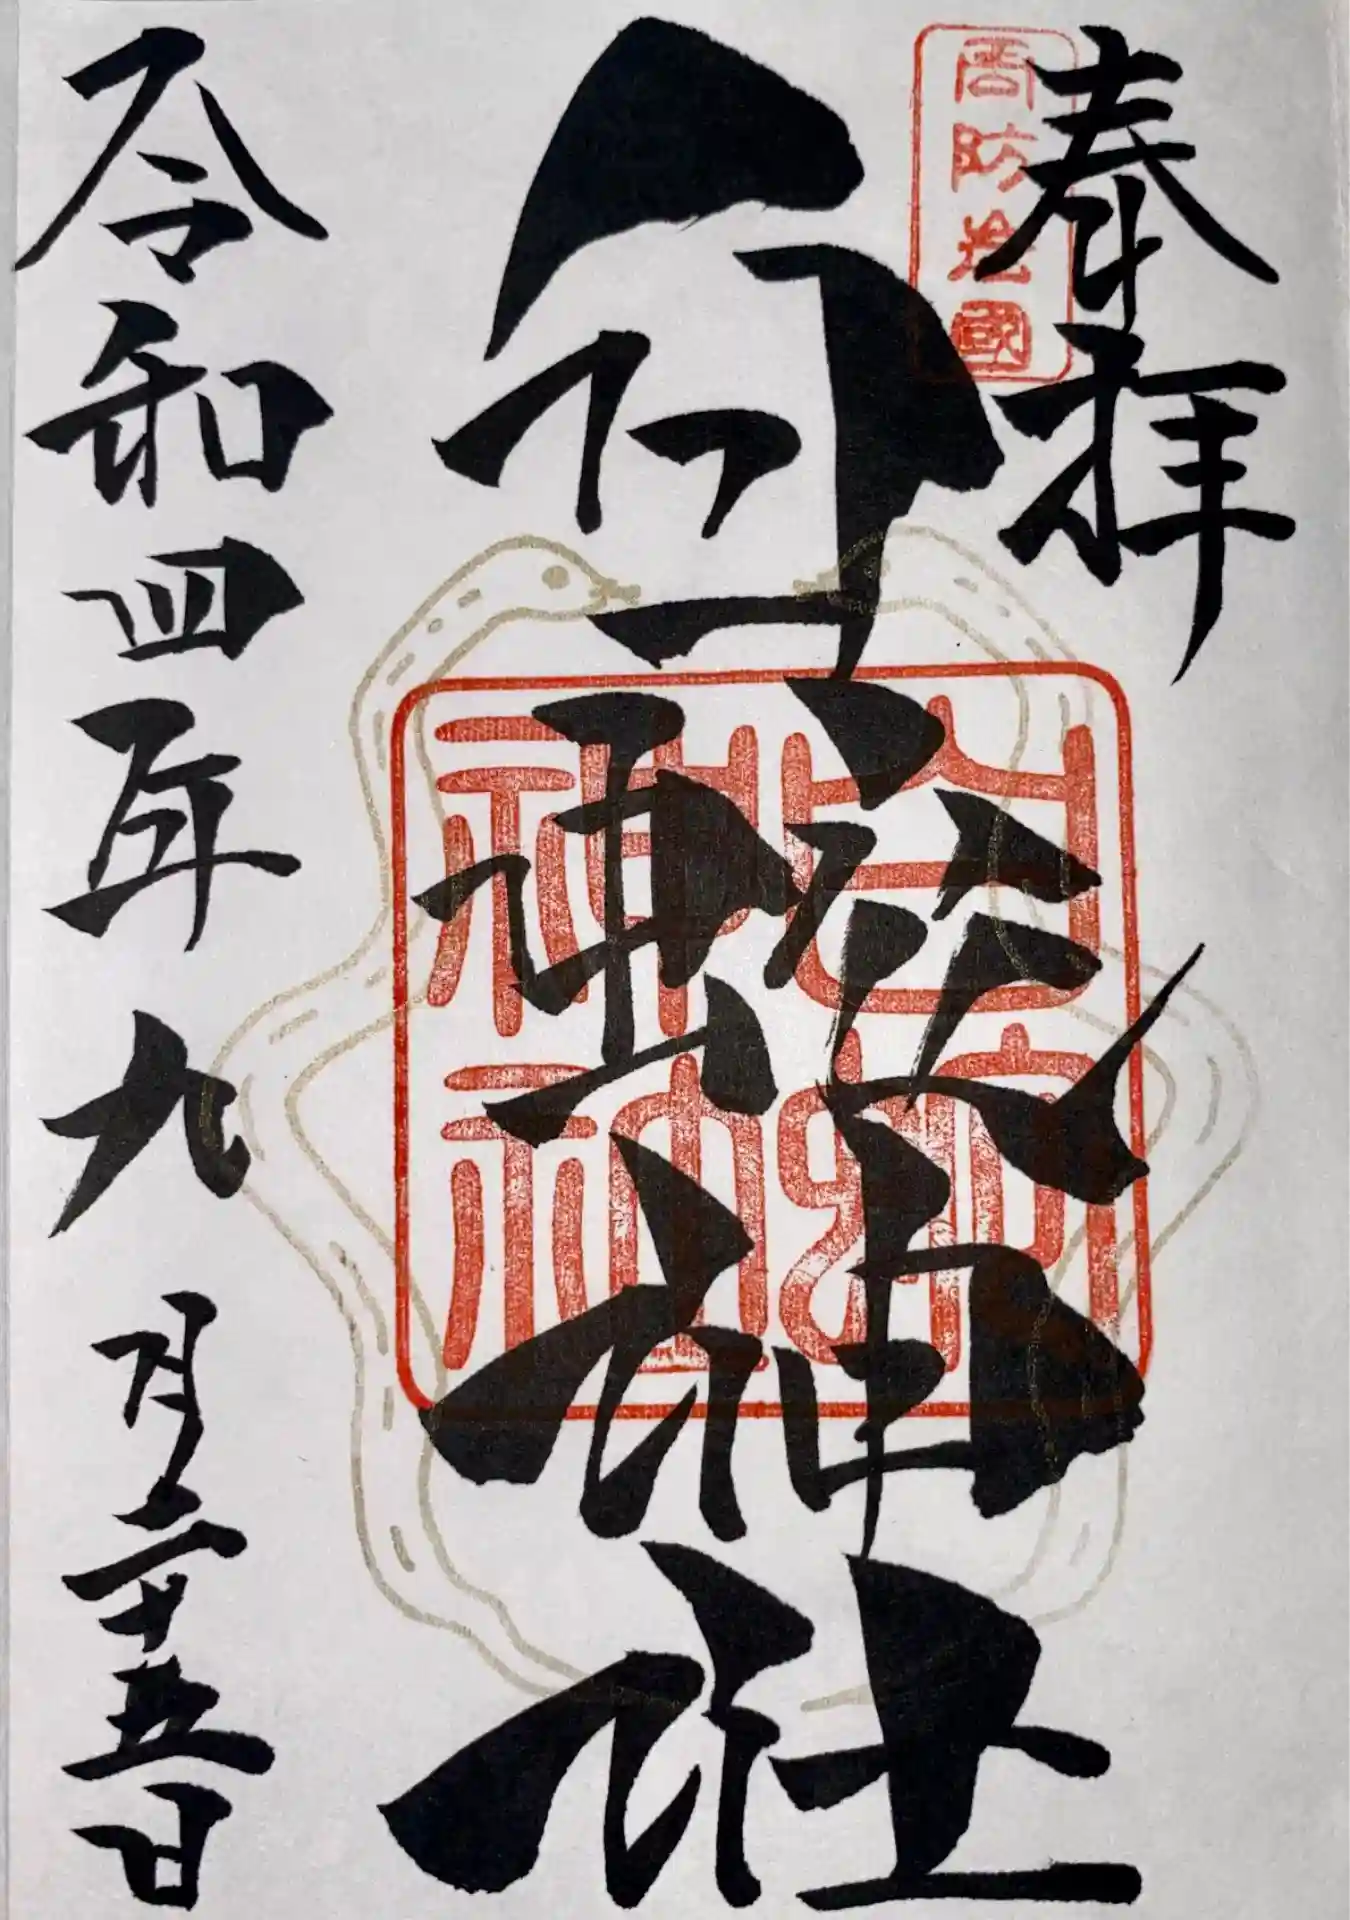 奉拝
周防岩國
白蛇神社
白蛇神社
令和四年九月二十五日